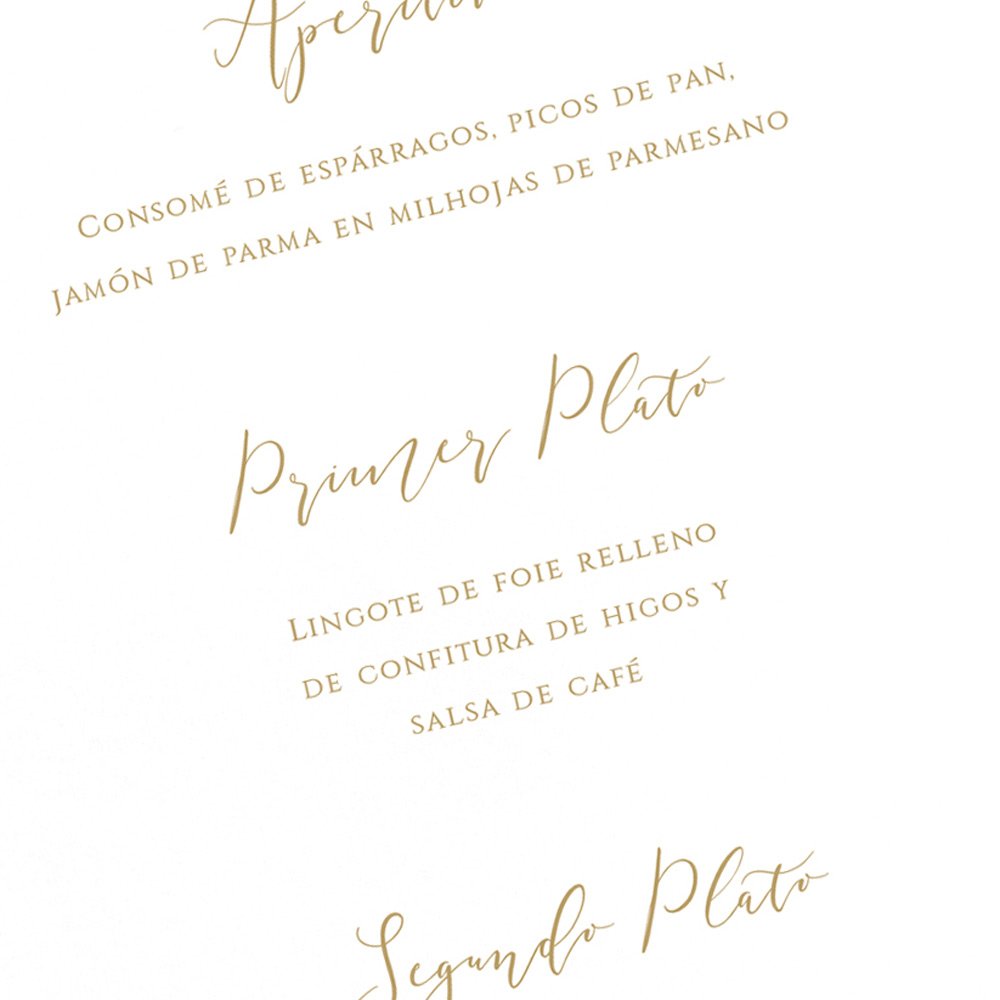 CONSOMÉ DE ESPÁRRAGOS, PICOS DE PAN,
JAMÓN DE PARMA EN MILHOJAS DE PARMESANO
Primer Plato
LINGOTE DE FOIE RELLENO
DE CONFITURA DE HIGOS Y
SALSA DE CAFÉ
Segundo Plato